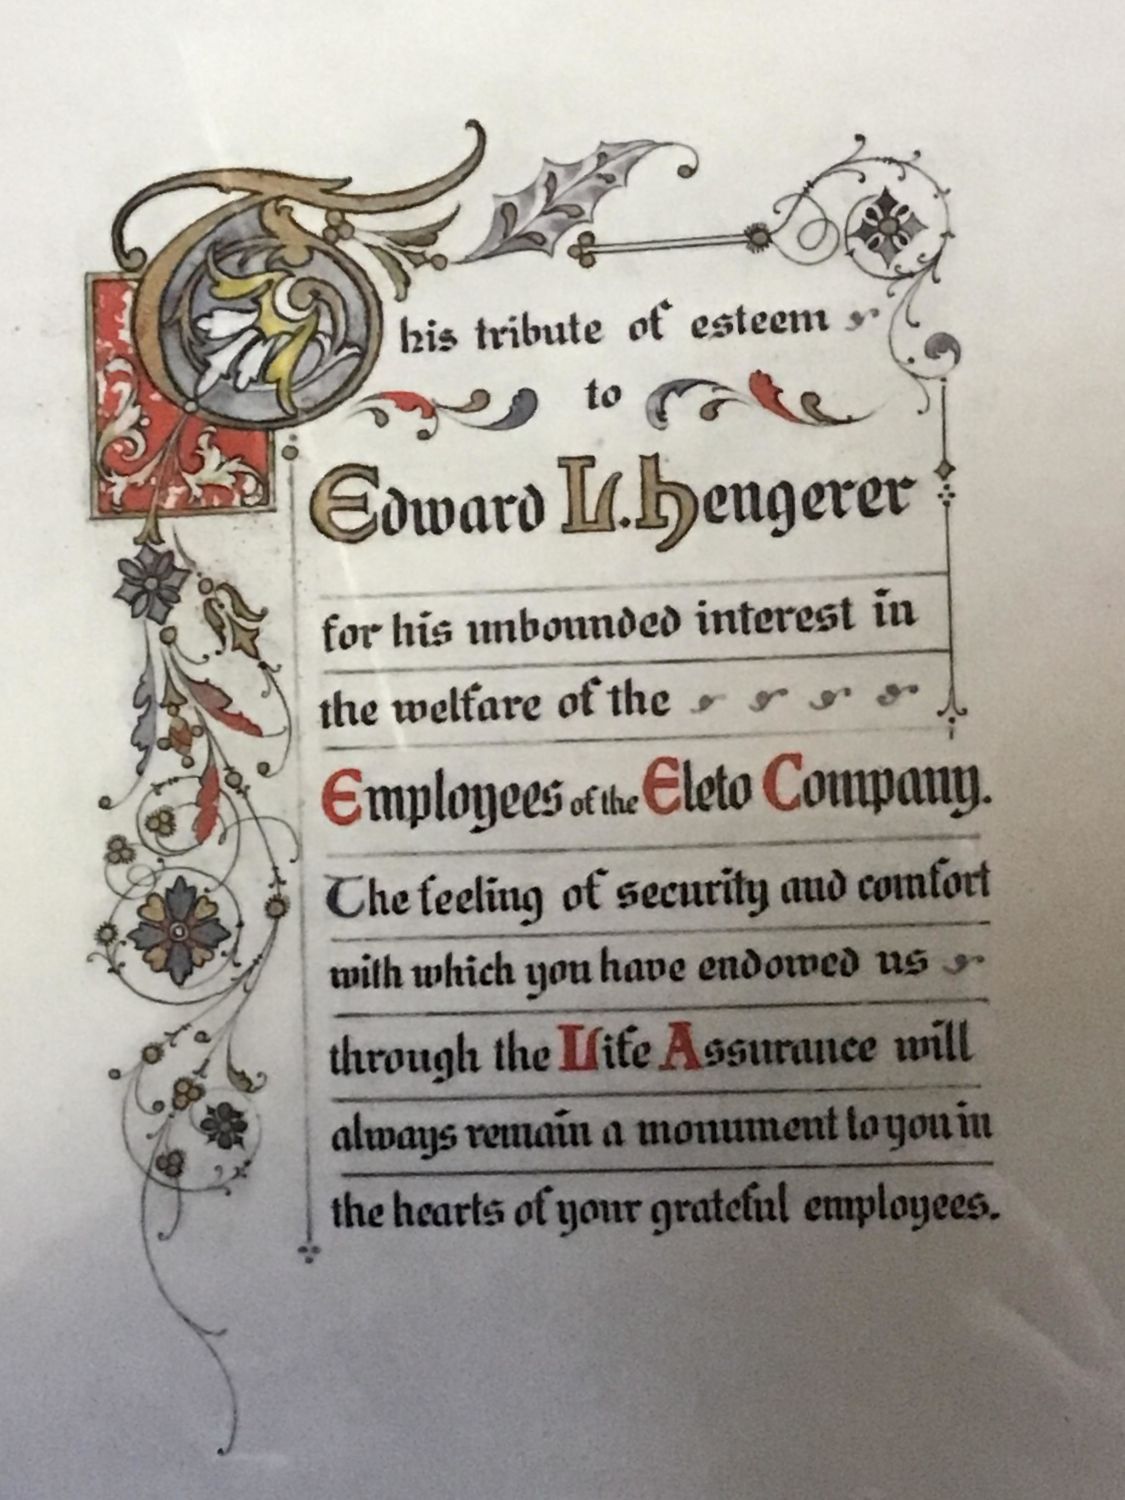 This tribute of esteem
to
Edward L. Hengerer
for his unbounded interest in
the welfare of the
Employees of the Eleto Company.
The feeling of security and comfort
with which you have endowed us
through the Life Assurance will
always remain a monument to you in
the hearts of your grateful employees.